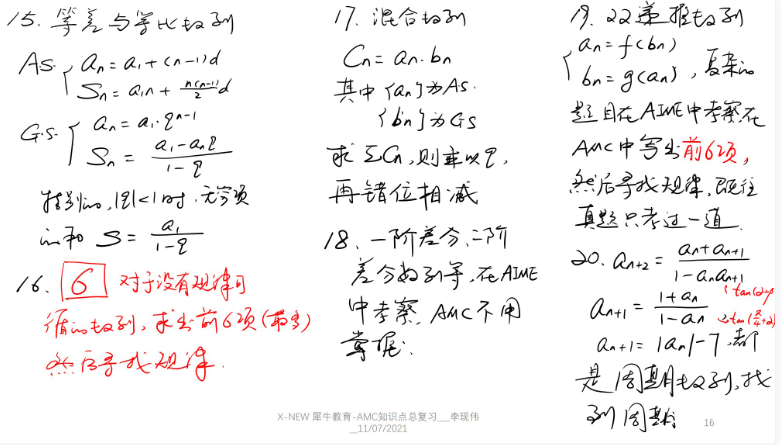 15. 等差与等比数列
As. { an = a1 + (n-1)d
Sn = a1n + n(n-1)/2 d
G.S. { an = a1·q^(n-1)
Sn = (a1 - anq)/(1-q)
特别的, |q|<1时, 无穷项
的和 S = a1/(1-q)
16. 6 对于没有规律可
循的数列, 求出前6项(最多)
然后寻找规律.
17. 混合数列
Cn = an·bn
其中{an}为As.
{bn}为GS
求ΣCn, 则乘以q,
再错位相减
18. 一阶差分、二阶
差分数列等, 在AIME
中考察, AMC不用
掌握.
19. 22递推数列
{ an = f(bn)
bn = g(an), 复杂的
题目在AIME中考察在
AMC中写出前6项,
然后寻找规律. 既往
真题只考过一道.
20. an+2 = (an + an+1)/(1 - an an+1)
an+1 = (1+an)/(1-an)
an+1 = |an| - 7, 都
是周期数列, 找
到周期
X-NEW 犀牛教育-AMC知识点总复习__李现伟
__11/07/2021
16